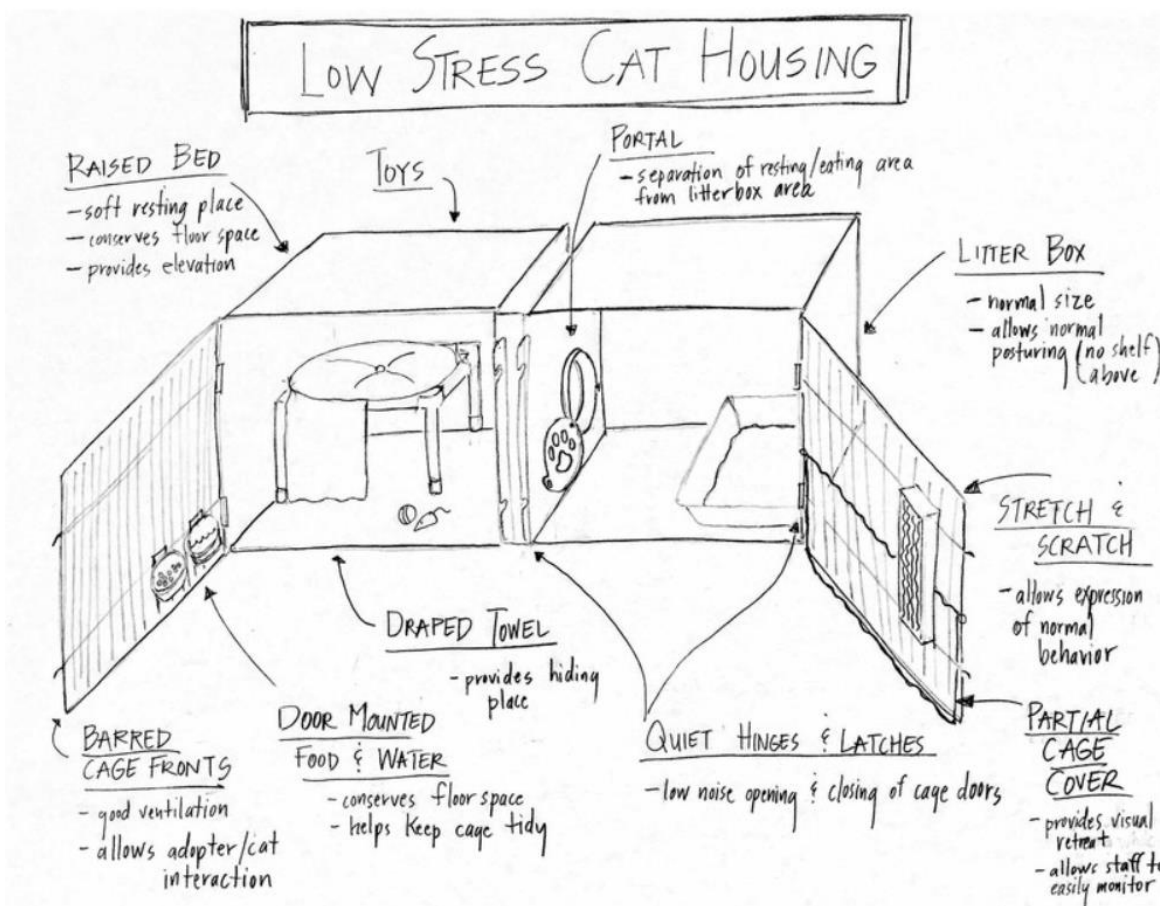 LOW STRESS CAT HOUSING
RAISED BED
- soft resting place
- conserves floor space
- provides elevation
TOYS
PORTAL
- separation of resting/eating area
from litterbox area
LITTER BOX
- normal size
- allows normal
posturing (no shelf
above)
STRETCH &
SCRATCH
- allows expression
of normal
behavior
PARTIAL
CAGE
COVER
- provides visual
retreat
- allows staff to
easily monitor
QUIET HINGES & LATCHES
- low noise opening & closing of cage doors
DRAPED TOWEL
- provides hiding
place
DOOR MOUNTED
FOOD & WATER
- conserves floor space
- helps keep cage tidy
BARRED
CAGE FRONTS
- good ventilation
- allows adopter/cat
interaction